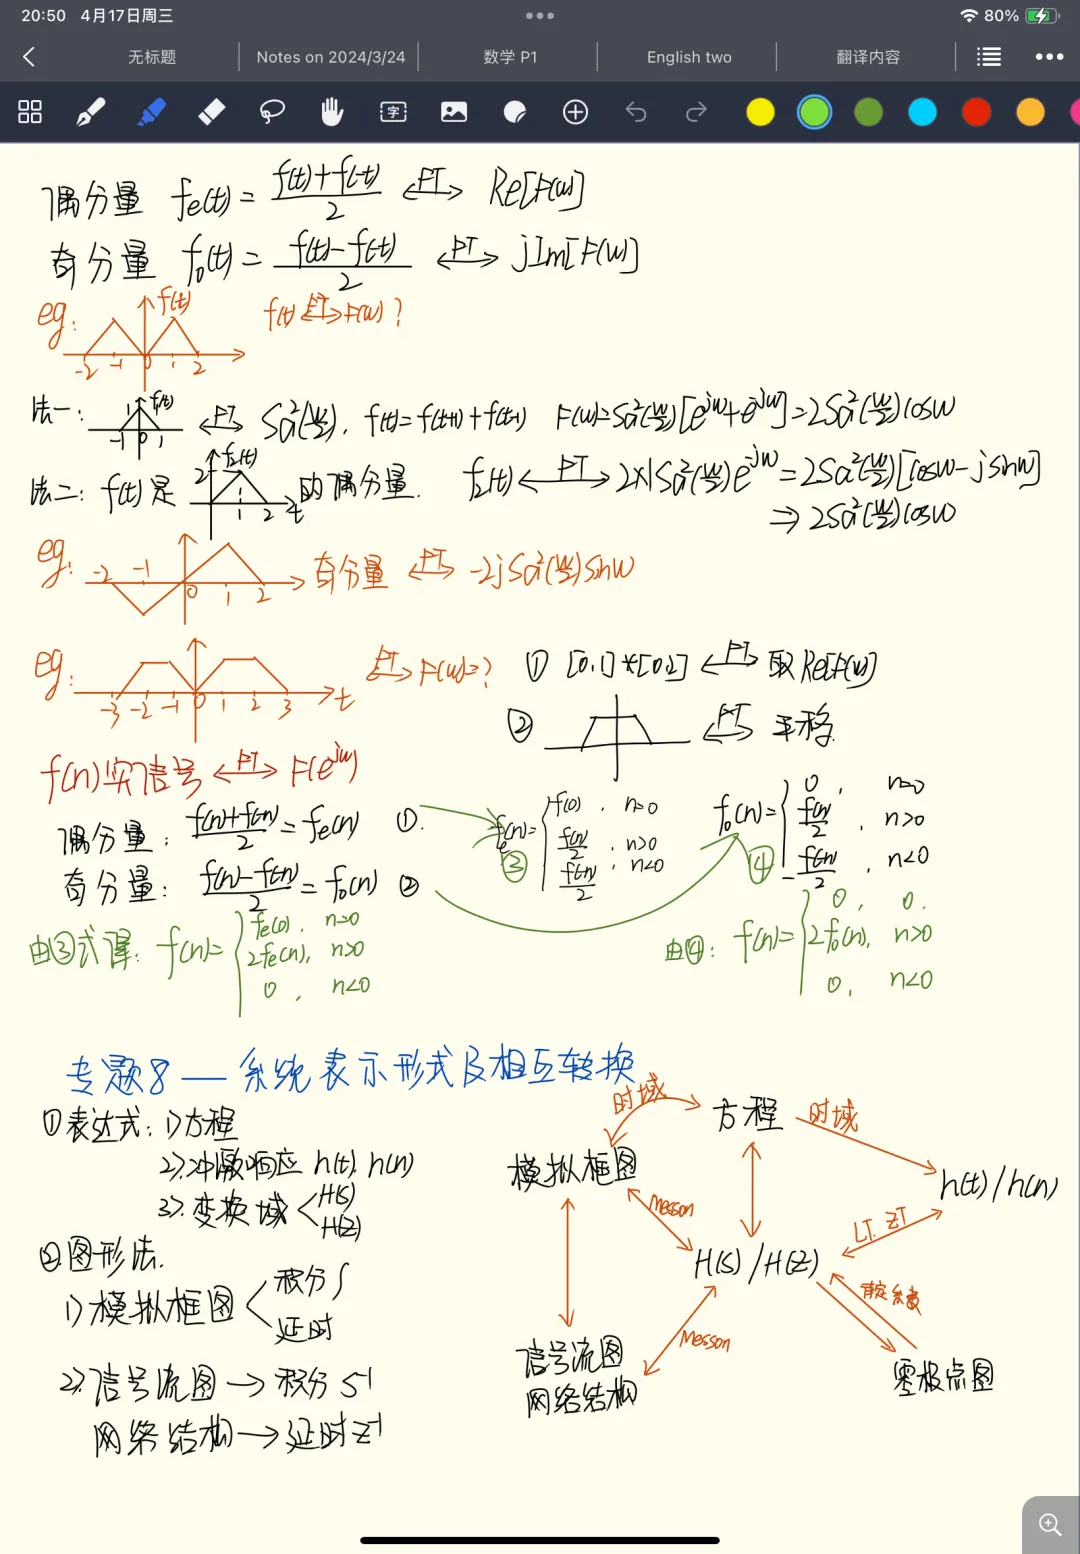 20:50 4月17日周三 80%
无标题 Notes on 2024/3/24 数学 P1 English two 翻译内容
字
偶分量 fe(t) = f(t)+f(-t) / 2 ←FT→ Re[F(w)]
奇分量 fo(t) = f(t)-f(-t) / 2 ←FT→ jIm[F(w)]
eg: f(t) f(t) ←FT→ F(w)?
-2 -1 0 1 2
法一: 1 f(t) -1 0 1 ←FT→ Sa²(w/2). f(t)=f(t+1)+f(t-1) F(w)=Sa²(w/2)[e^jw+e^-jw]=2Sa²(w/2)cosw
法二: f(t)是 2 f₂(t) 1 2 t 的偶分量. f₂(t) ←FT→ 2×1Sa²(w/2)e^-jw=2Sa²(w/2)[cosw-jsinw]
⇒ 2Sa²(w/2)cosw
eg: -2 -1 0 1 2 奇分量 ←FT→ -2jSa²(w/2)sinw
eg: -3 -2 -1 0 1 2 3 t ←FT→ F(w)=? ① [0,1]*[0,2] ←FT→ 取Re[F(w)]
② ←FT→ 平移.
f(n)实信号 ←FT→ F(e^jw)
偶分量: f(n)+f(-n) / 2 = fe(n) ①.
奇分量: f(n)-f(-n) / 2 = fo(n) ②
fe(n)= { f(0), n=0
f(n)/2, n>0
f(-n)/2, n<0
③
fo(n)= { 0, n=0
f(n)/2, n>0
-f(-n)/2, n<0
④
由③式得: f(n)= { fe(0), n=0
2fe(n), n>0
0, n<0
由④: f(n)= { 0, 0.
2fo(n), n>0
0, n<0
专题8 — 系统表示形式及相互转换
①表达式: 1)方程
2)冲激响应 h(t), h(n)
3)变换域 < H(s)
H(z)
②图形法.
1)模拟框图 < 积分∫
延时
2)信号流图 → 积分 s⁻¹
网络结构 → 延时 z⁻¹
时域 方程 时域
模拟框图 h(t)/h(n)
Messon LT. ZT
H(s)/H(z)
Messon
信号流图
网络结构 零极点图